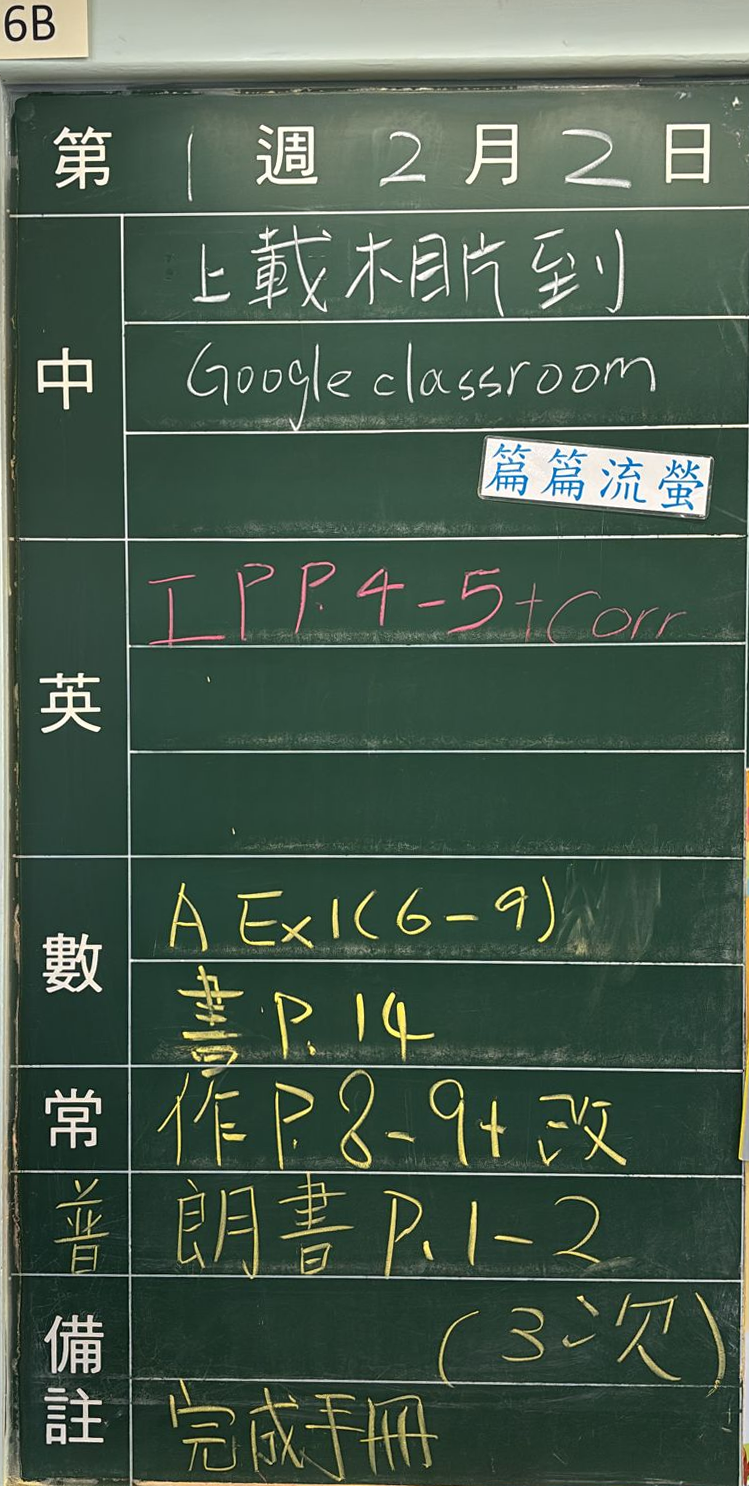 6B
第1週2月2日
中
上載相片到
Google classroom
篇篇流螢
英
IP P.4-5+Corr
數
A Ex1(6-9)
書 P.14
常
作P.8-9+改
普
朗書 P.1-2
(3次)
備註
完成手冊